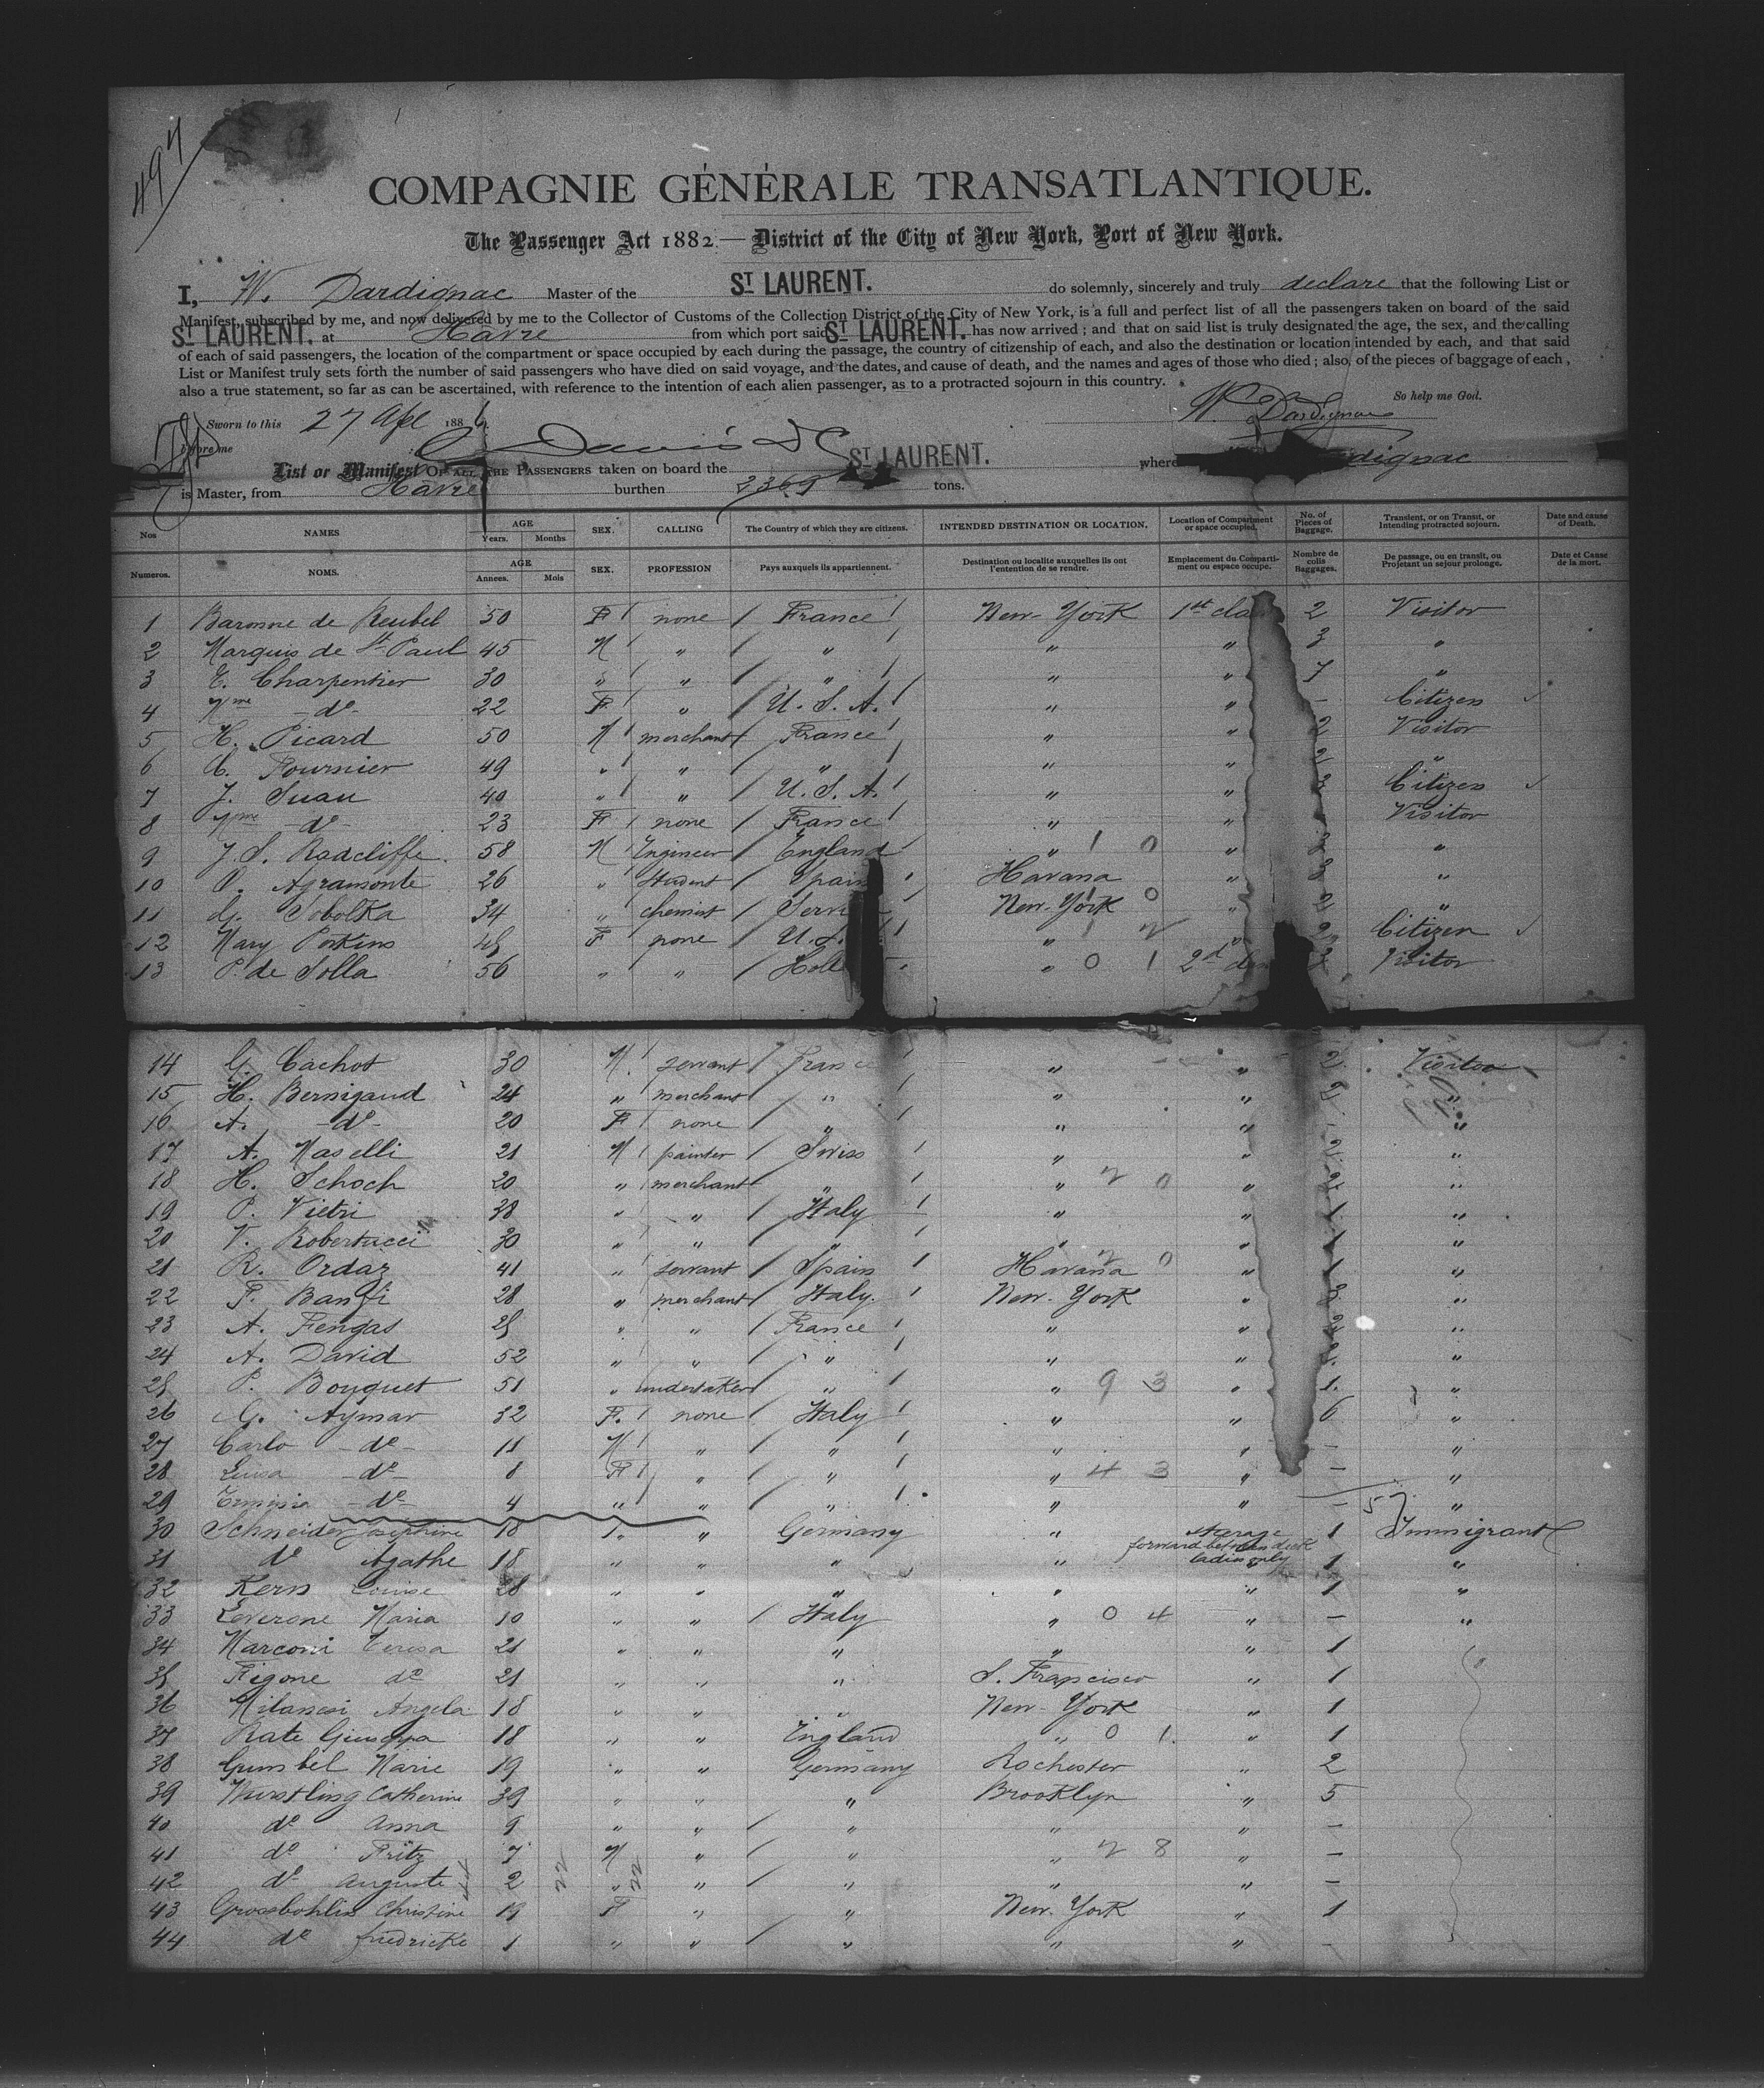 494
COMPAGNIE GÉNÉRALE TRANSATLANTIQUE.
The Passenger Act 1882 — District of the City of New York, Port of New York.
I, W. Dardignac Master of the ST LAURENT. do solemnly, sincerely and truly declare that the following List or
Manifest, subscribed by me, and now delivered by me to the Collector of Customs of the Collection District of the City of New York, is a full and perfect list of all the passengers taken on board of the said
ST LAURENT. at Havre from which port said ST LAURENT. has now arrived ; and that on said list is truly designated the age, the sex, and the calling
of each of said passengers, the location of the compartment or space occupied by each during the passage, the country of citizenship of each, and also the destination or location intended by each, and that said
List or Manifest truly sets forth the number of said passengers who have died on said voyage, and the dates, and cause of death, and the names and ages of those who died ; also, of the pieces of baggage of each ,
also a true statement, so far as can be ascertained, with reference to the intention of each alien passenger, as to a protracted sojourn in this country.
W. Dardignac So help me God.
Sworn to this 27 Apl 1886
before me Davis
List or Manifest OF ALL THE PASSENGERS taken on board the ST LAURENT. where dignac
is Master, from Havre burthen 2369 tons.
Nos NAMES AGE Years. Months SEX. CALLING The Country of which they are citizens. INTENDED DESTINATION OR LOCATION. Location of Compartment or space occupied. No. of Pieces of Baggage. Transient, or on Transit, or Intending protracted sojourn. Date and cause of Death.
Numeros. NOMS. AGE Annees. Mois SEX. PROFESSION Pays auxquels ils appartiennent. Destination ou localite auxquelles ils ont l'entention de se rendre. Emplacement du Comparti- ment ou espace occupe. Nombre de colis Baggages. De passage, ou en transit, ou Projetant un sejour prolonge. Date et Cause de la mort.
1 Baronne de Reubel 50 F none France New-York 1st clas 2 Visitor
2 Marquis de St Paul 45 M " " " " 3 "
3 E. Charpentier 30 " " " " " 7 "
4 Mme - do - 22 F " U. S. A. " " - Citizen
5 H. Picard 50 M merchant France " " 2 Visitor
6 C. Fournier 49 " " " " " 2 "
7 J. Suau 40 " " U. S. A. " " Citizen
8 Mme - do - 23 F none France " " Visitor
9 J. S. Radcliffe 58 M Engineer England " 1 0 " "
10 O. Agramonte 26 " Student Spain Havana " "
11 G. Sobolka 34 " chemist Servi New-York 0 " 2 "
12 Mary Perkins 45 F none U. S. " " Citizen
13 P. de Solla 56 " " Holl " 0 1 2d Visitor
14 G. Cachot 30 M. servant France " " 2 Visitor
15 H. Bernigaud 24 " merchant " " " 2 "
16 A. - do - 20 F none " " " "
17 A. Maselli 21 M painter Swiss " " "
18 H. Schoch 20 " merchant " " 2 0 " "
19 P. Vietri 38 " " Italy " " 1 "
20 V. Robertucci 30 " " " " " 1 "
21 R. Ordaz 41 " servant Spain Havana 2 0 " 1 "
22 F. Banfi 28 " merchant Italy. New-York " "
23 A. Fengas 25 " " France " " "
24 A. David 52 " " " " " "
25 P. Bouquet 51 " undertaker " " 9 3 " 1. "
26 G. Aymar 32 F. none Italy " " 6 "
27 Carlo - do - 11 M " " " " - "
28 Luisa - do - 8 F " " " 4 3 " - "
29 - do - 4 " " " " " - 57 "
30 Schneider Josephine 18 F. " Germany " sterage forward between deck ladies only 1 Immigrant
31 do Agathe 18 " " " " " 1 "
32 Kern Louise 28 " " " " " 1 "
33 Leverone Maria 10 " " Italy " 0 4 " - "
34 Marconi Teresa 21 " " " " " 1
35 Figone do 21 " " " S. Francisco " 1
36 Milanesi Angela 18 " " " New-York " 1
37 Rate Giuseppa 18 " " England " 0 1. " 1
38 Gumbel Marie 19 " " Germany Rochester " 2
39 Wurstling Catherine 39 " " " Brooklyn " 5
40 do Anna 9 " " " " " -
41 do Fritz 7 M " " " 2 8 " -
42 do Auguste 2 " " " " " -
43 Grossbohlin Christine 19 F " " New-York " 1
44 do fredricke 1 " " " " " -